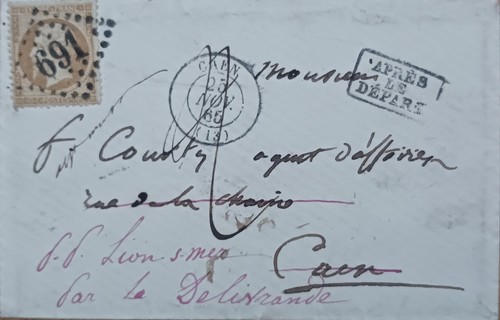 691
CAEN
25
NOV.
65
(13)
APRÈS
LE
DÉPART
Monsieur
agent d'affaires
rue de la chaine
Caen
Lion s-mer
par la Delivrande